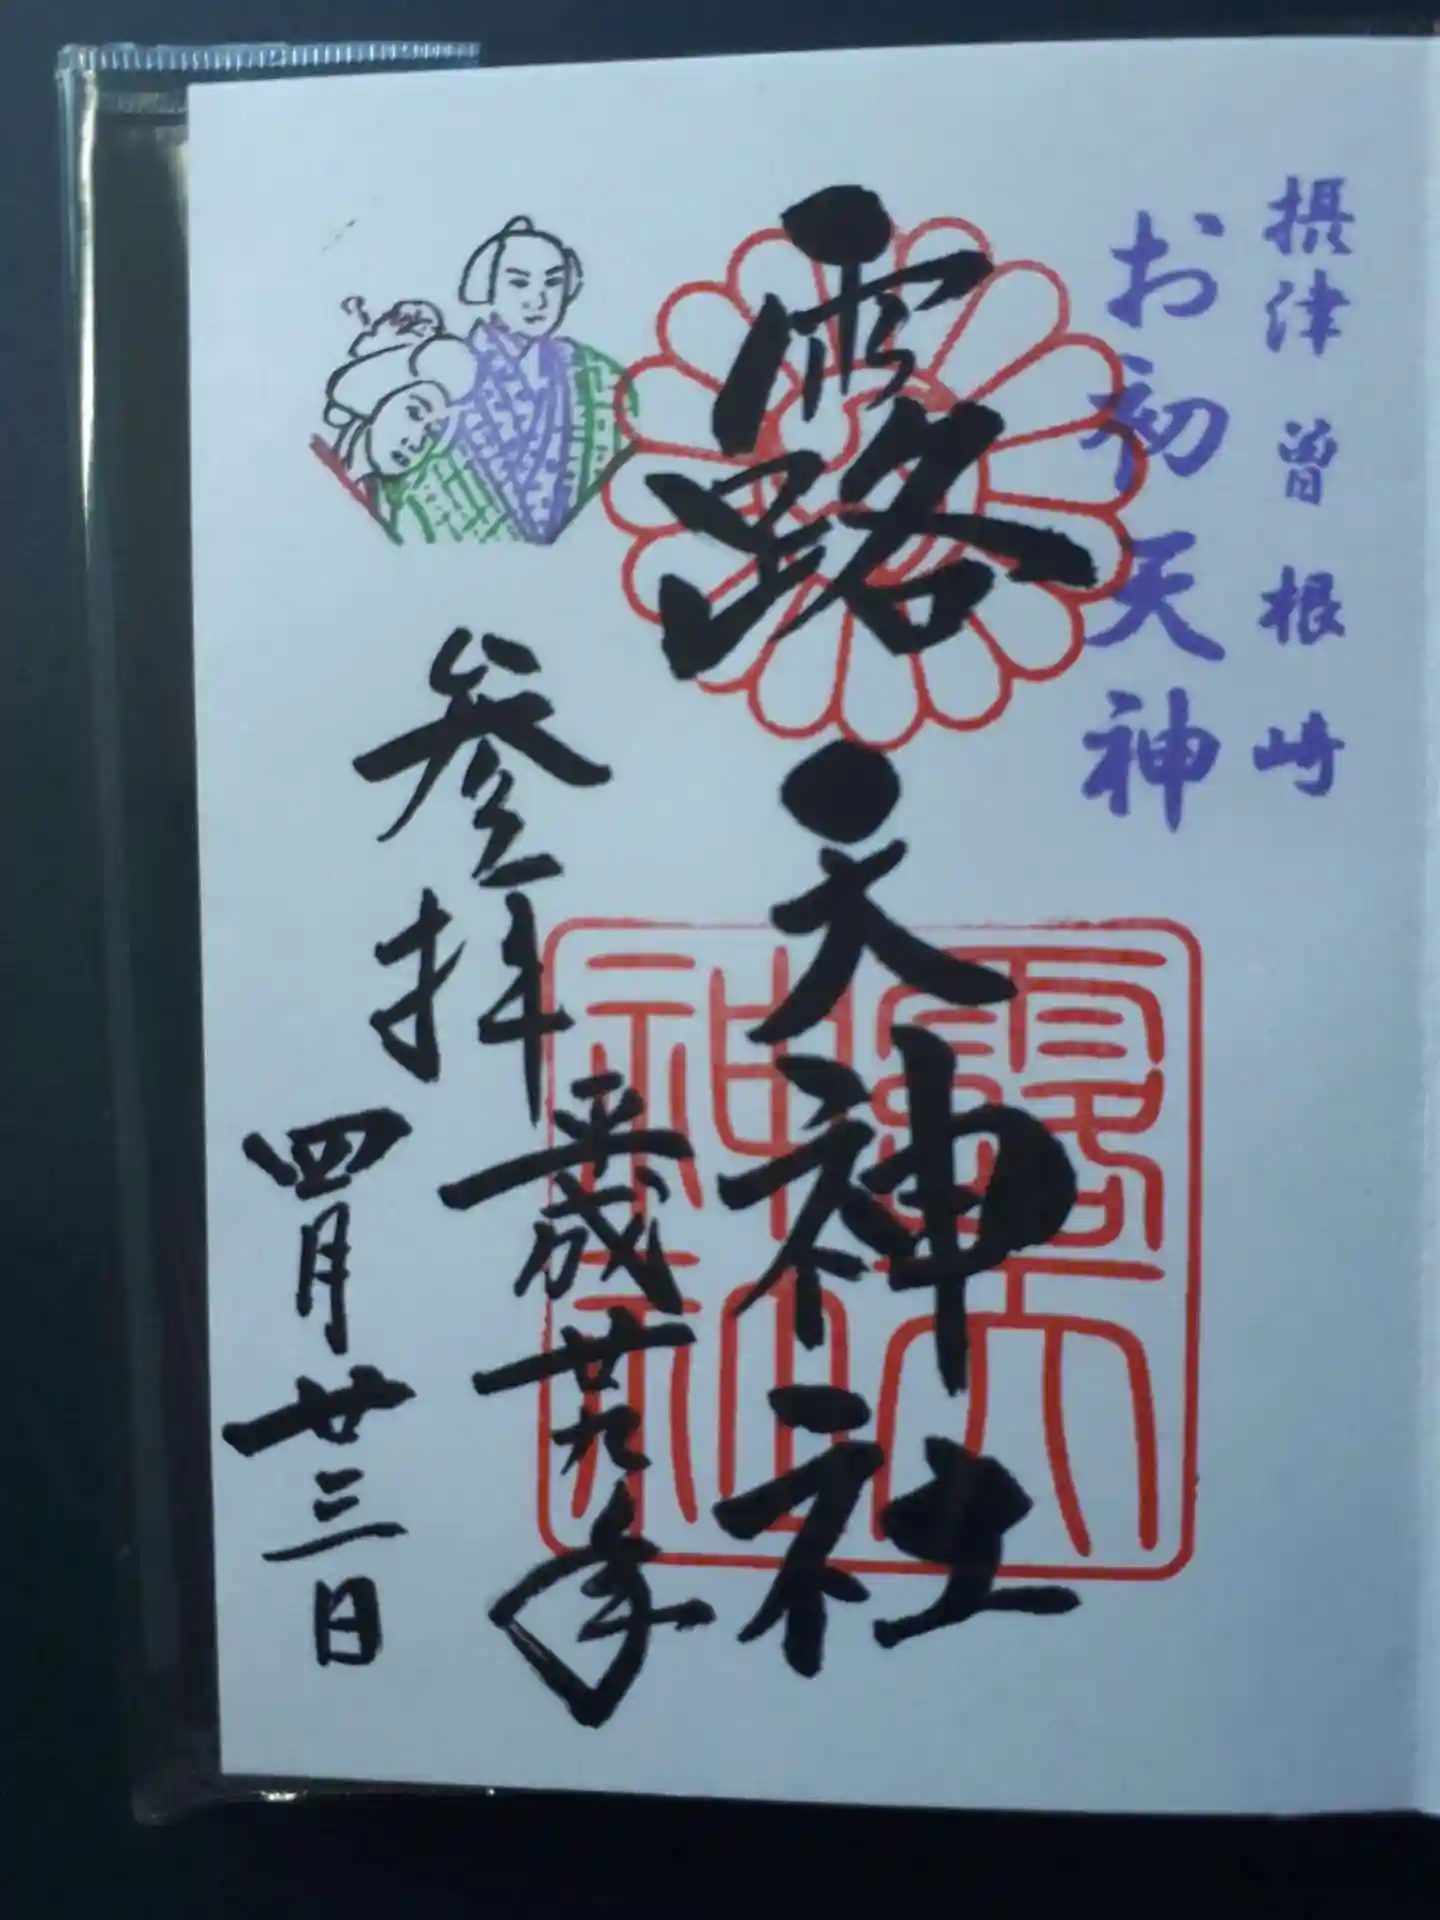 摂津 曽根崎
お初天神
露天神社
参拝
平成廿九年
四月廿三日
露天神社